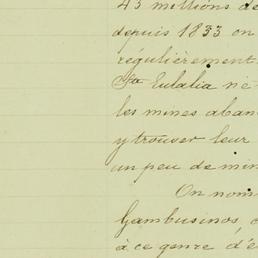 45 millions de
depuis 1833 on
régulièrement
Sta Eulalia n'é
les mines aban
y trouver leur
un peu de min
On nom
Gambusinos, c
à ce genre d'e